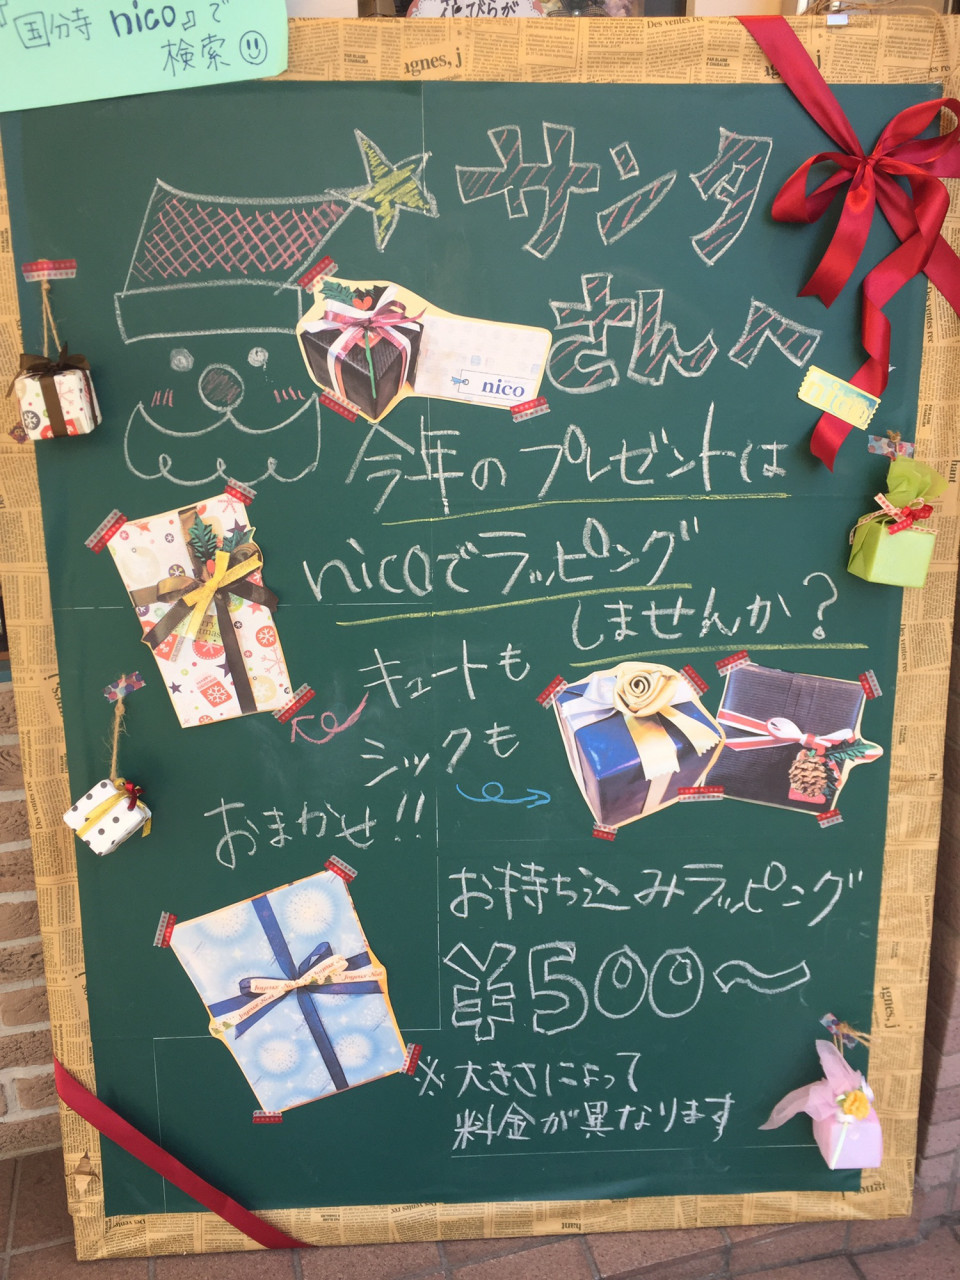 『国分寺 nico』で
検索
サンタ
さんへ
nico
今年のプレゼントは
nicoでラッピング
しませんか?
キュートも
シックも
おまかせ!!
お持ち込みラッピング
¥500〜
※大きさによって
料金が異なります